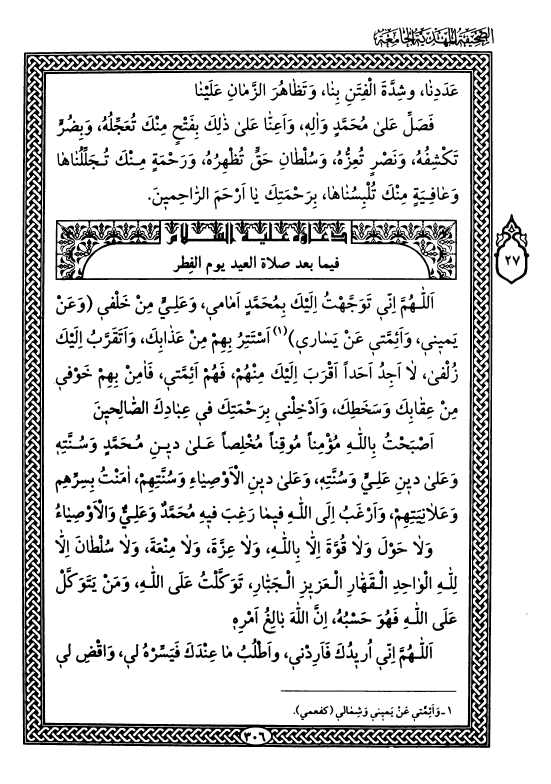 الصحيفة المهدية الجامعة
عَدَدِنٰا، وشِدَّةَ الْفِتَنِ بِنٰا، وَتَظٰاهُرَ الزَّمٰانِ عَلَيْنٰا
فَصَلِّ عَلىٰ مُحَمَّدٍ وَاٰلِهِ، وَاَعِنّٰا عَلىٰ ذٰلِكَ بِفَتْحٍ مِنْكَ تُعَجِّلُهُ، وَبِضُرٍّ
تَكْشِفُهُ، وَنَصْرٍ تُعِزُّهُ، وَسُلْطٰانِ حَقٍّ تُظْهِرُهُ، وَرَحْمَةٍ مِنْكَ تُجَلِّلُنٰاهٰا
وَعٰافِيَةٍ مِنْكَ تُلْبِسُنٰاهٰا، بِرَحْمَتِكَ يٰا اَرْحَمَ الرّٰاحِمينَ.
دعاؤه عليه السلام
فيما بعد صلاة العيد يوم الفِطر
٢٧
اَللّٰهُمَّ اِنّي تَوَجَّهْتُ اِلَيْكَ بِمُحَمَّدٍ اَمٰامي، وَعَلِيٍّ مِنْ خَلْفي (وَعَنْ
يَميني، وَاَئِمَّتي عَنْ يَسٰاري)(١) اَسْتَتِرُ بِهِمْ مِنْ عَذٰابِكَ، وَاَتَقَرَّبُ اِلَيْكَ
زُلْفىٰ، لاٰ اَجِدُ اَحَداً اَقْرَبَ اِلَيْكَ مِنْهُمْ، فَهُمْ اَئِمَّتي، فَاٰمِنْ بِهِمْ خَوْفي
مِنْ عِقٰابِكَ وَسَخَطِكَ، وَاَدْخِلْني بِرَحْمَتِكَ في عِبٰادِكَ الصّٰالِحينَ
اَصْبَحْتُ بِاللّٰهِ مُؤْمِناً مُوقِناً مُخْلِصاً عَلىٰ دينِ مُحَمَّدٍ وَسُنَّتِهِ
وَعَلىٰ دينِ عَلِيٍّ وَسُنَّتِهِ، وَعَلىٰ دينِ الْاَوْصِيٰاءِ وَسُنَّتِهِمْ، اٰمَنْتُ بِسِرِّهِمْ
وَعَلاٰنِيَتِهِمْ، وَاَرْغَبُ اِلَى اللّٰهِ فيمٰا رَغِبَ فيهِ مُحَمَّدٌ وَعَلِيٌّ وَالْاَوْصِيٰاءُ
وَلاٰ حَوْلَ وَلاٰ قُوَّةَ اِلّٰا بِاللّٰهِ، وَلاٰ عِزَّةَ، وَلاٰ مِنْعَةَ، وَلاٰ سُلْطٰانَ اِلّٰا
لِلّٰهِ الْوٰاحِدِ الْقَهّٰارِ الْعَزيزِ الْجَبّٰارِ، تَوَكَّلْتُ عَلَى اللّٰهِ، وَمَنْ يَتَوَكَّلْ
عَلَى اللّٰهِ فَهُوَ حَسْبُهُ، اِنَّ اللّٰهَ بٰالِغُ اَمْرِهِ
اَللّٰهُمَّ اِنّي اُريدُكَ فَاَرِدْني، وَاَطْلُبُ مٰا عِنْدَكَ فَيَسِّرْهُ لي، وَاقْضِ لي
١- وَاَئِمَّتي عَنْ يَميني وَشِمٰالي (كفعمي).
٣٠٦